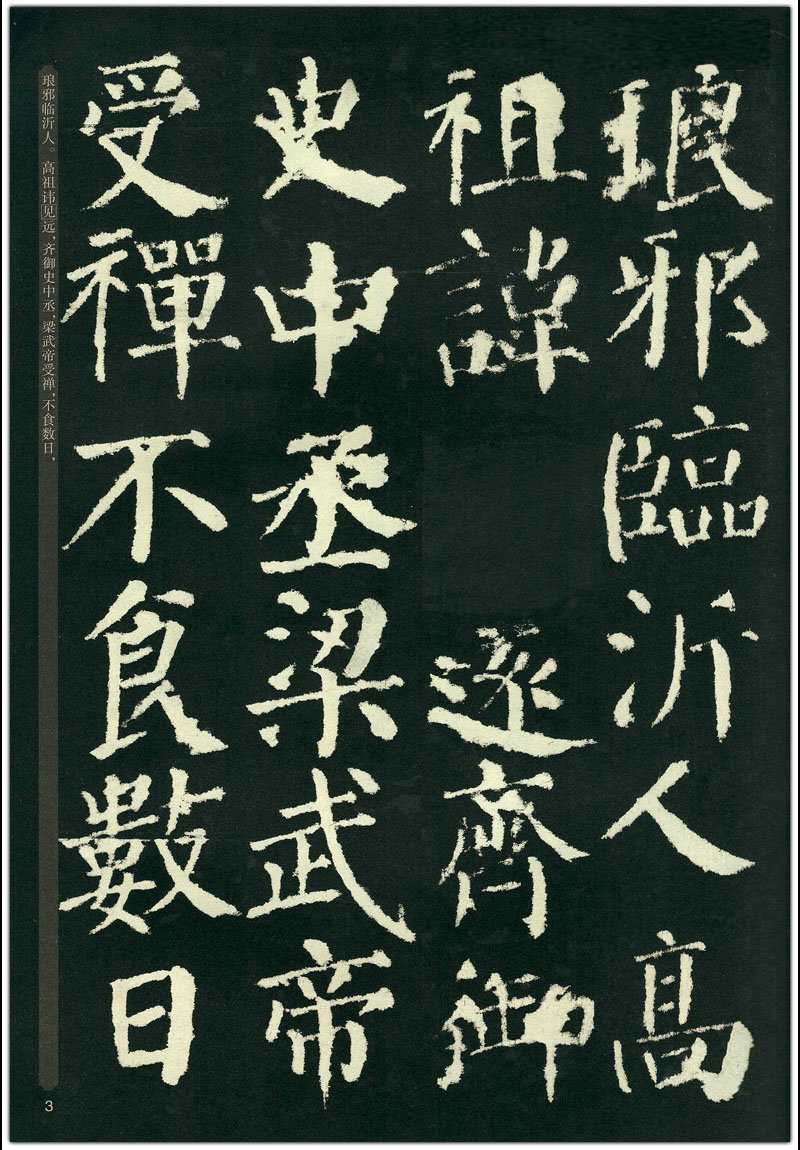 琅邪臨沂人高
祖諱遠齊御
史中丞梁武帝
受禪不食數日
琅邪临沂人。高祖讳见远，齐御史中丞，梁武帝受禅，不食数日，
3